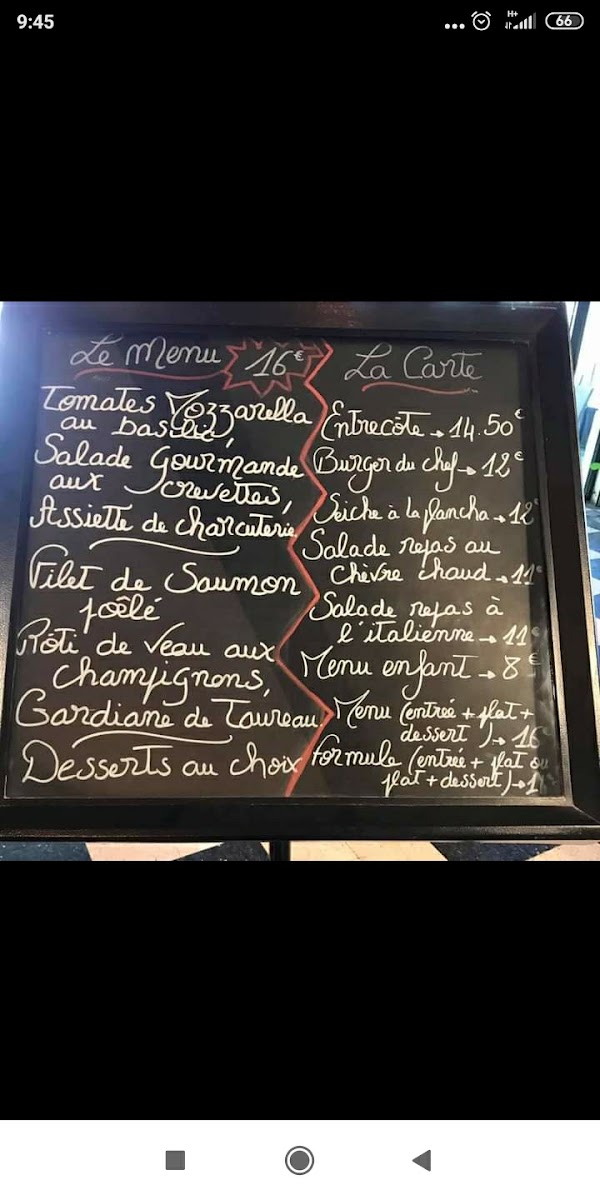 9:45
H+
66
Le Menu 16€
Tomates Mozzarella
au basilic,
Salade Gourmande
aux crevettes,
Assiette de charcuterie
Filet de Saumon
poêlé
Rôti de veau aux
champignons,
Gardiane de Taureau
Desserts au choix
La Carte
Entrecôte → 14.50€
Burger du chef → 12€
Seiche à la plancha → 12€
Salade repas au
chèvre chaud → 11€
Salade repas à
l'italienne → 11€
Menu enfant → 8€
Menu (entrée + plat +
dessert) → 16€
Formule (entrée + plat ou
plat + dessert) →